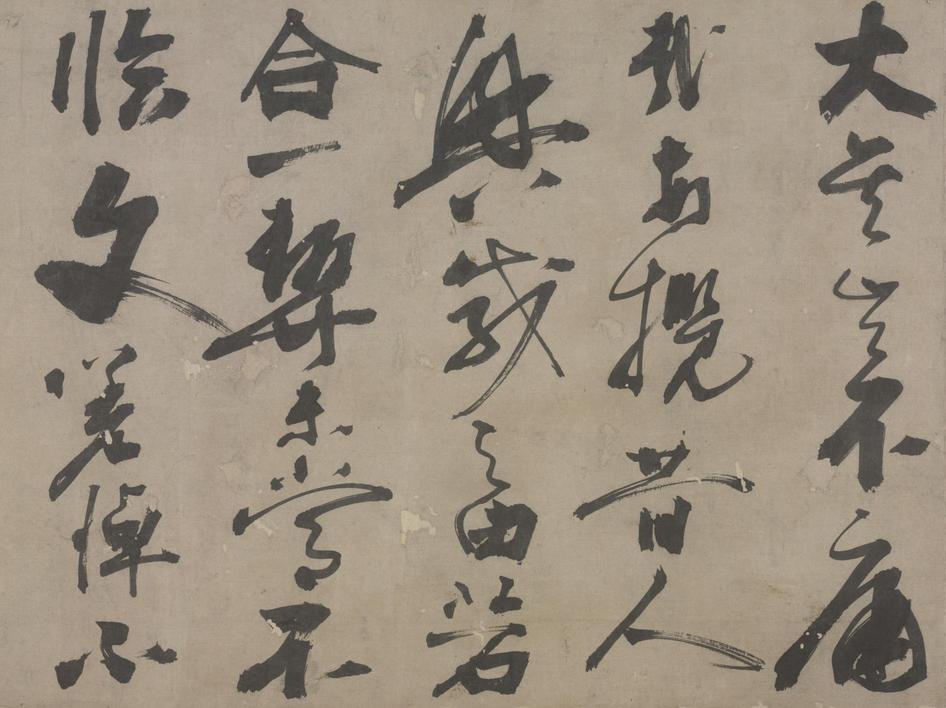 大矣豈不痛
哉每攬昔人
興感之由若
合一契未嘗不
臨文嗟悼不